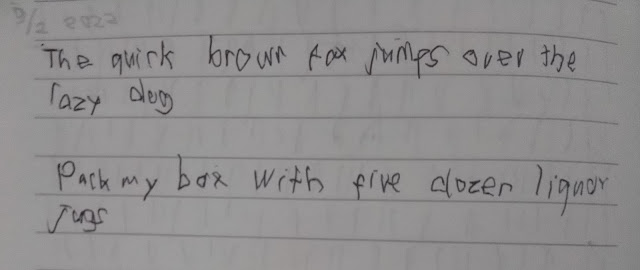 9/2 2022
The quick brown fox jumps over the
lazy dog
Pack my box with five dozen liquor
jugs